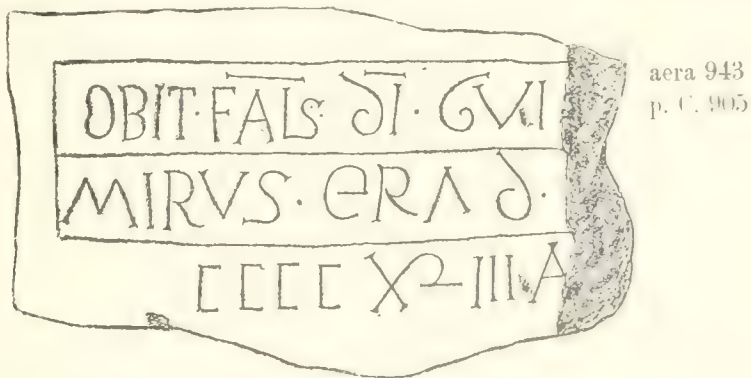 OBIT·FALS· DI· GVI
MIRVS· ERA D·
CCCC XL III A
aera 943
p. C. 905